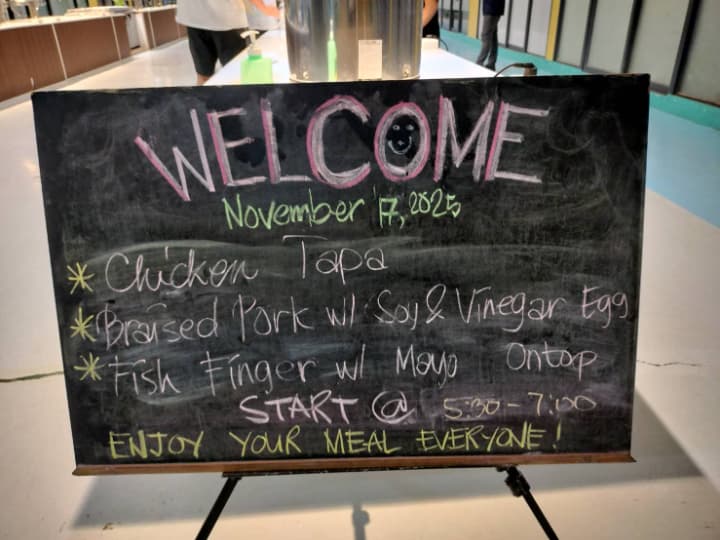 WELCOME
November 17, 2025
* Chicken Tapa
* Braised Pork w/ Soy & Vinegar Egg
* Fish Finger w/ Mayo Ontop
START @ 5:30 - 7:00
ENJOY YOUR MEAL EVERYONE!